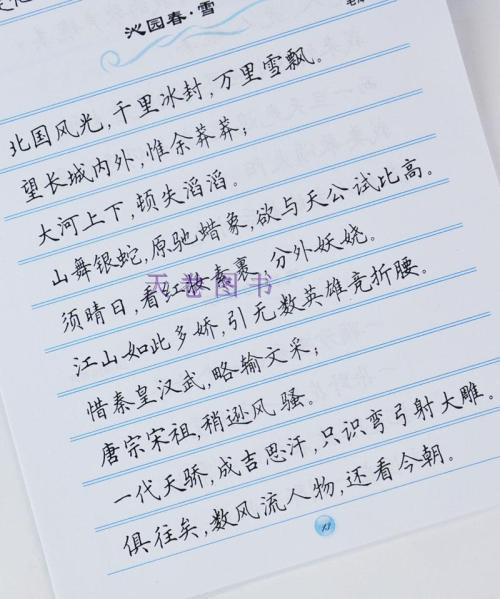 沁园春·雪
北国风光,千里冰封,万里雪飘。
望长城内外,惟余莽莽;
大河上下,顿失滔滔。
山舞银蛇,原驰蜡象,欲与天公试比高。
须晴日,看红妆素裹,分外妖娆。
天卷图书
江山如此多娇,引无数英雄竞折腰。
惜秦皇汉武,略输文采;
唐宗宋祖,稍逊风骚。
一代天骄,成吉思汗,只识弯弓射大雕。
俱往矣,数风流人物,还看今朝。